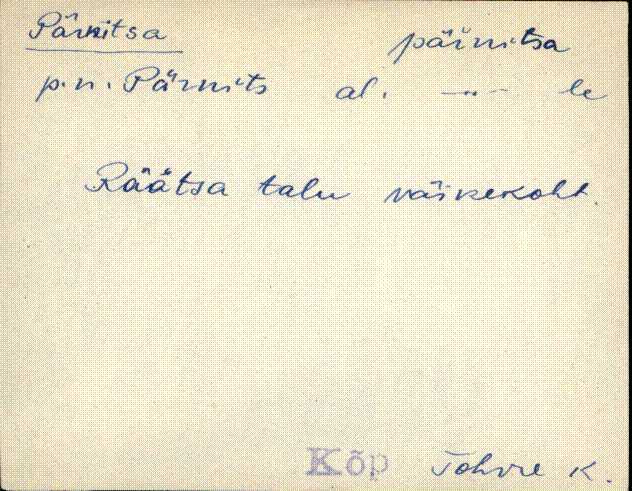 Pärnitsa pärnitsa
p.n. Pärnits al. —"— le
Räätsa talu väikekoht.
Kõp Tohvre K.